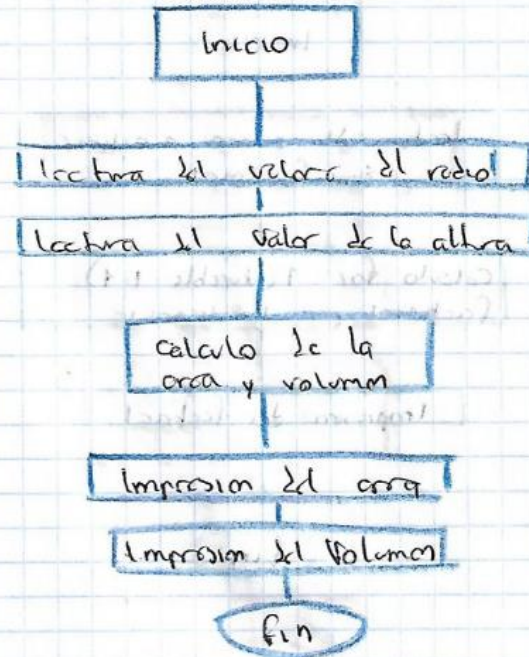 Inicio
lectura del valor del radio
lectura del valor de la altura
calculo de la
area y volumen
Impresion del area
Impresion del Volumen
fin